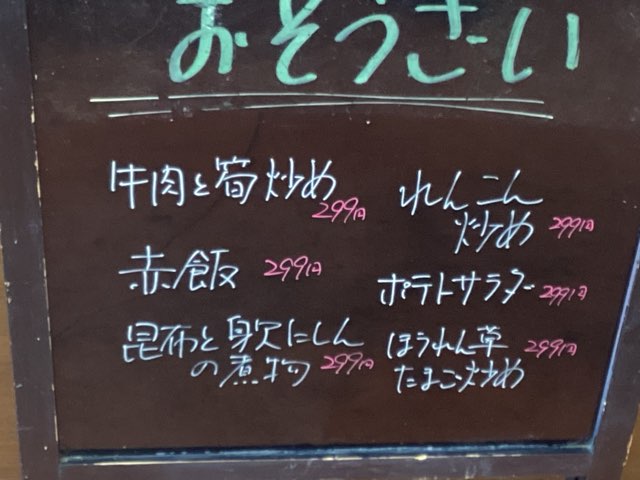 おそうざい
牛肉と筍炒め
299円
赤飯 299円
昆布と身欠にしん
の煮物 299円
れんこん
炒め 299円
ポテトサラダー 299円
ほうれん草 299円
たまご炒め